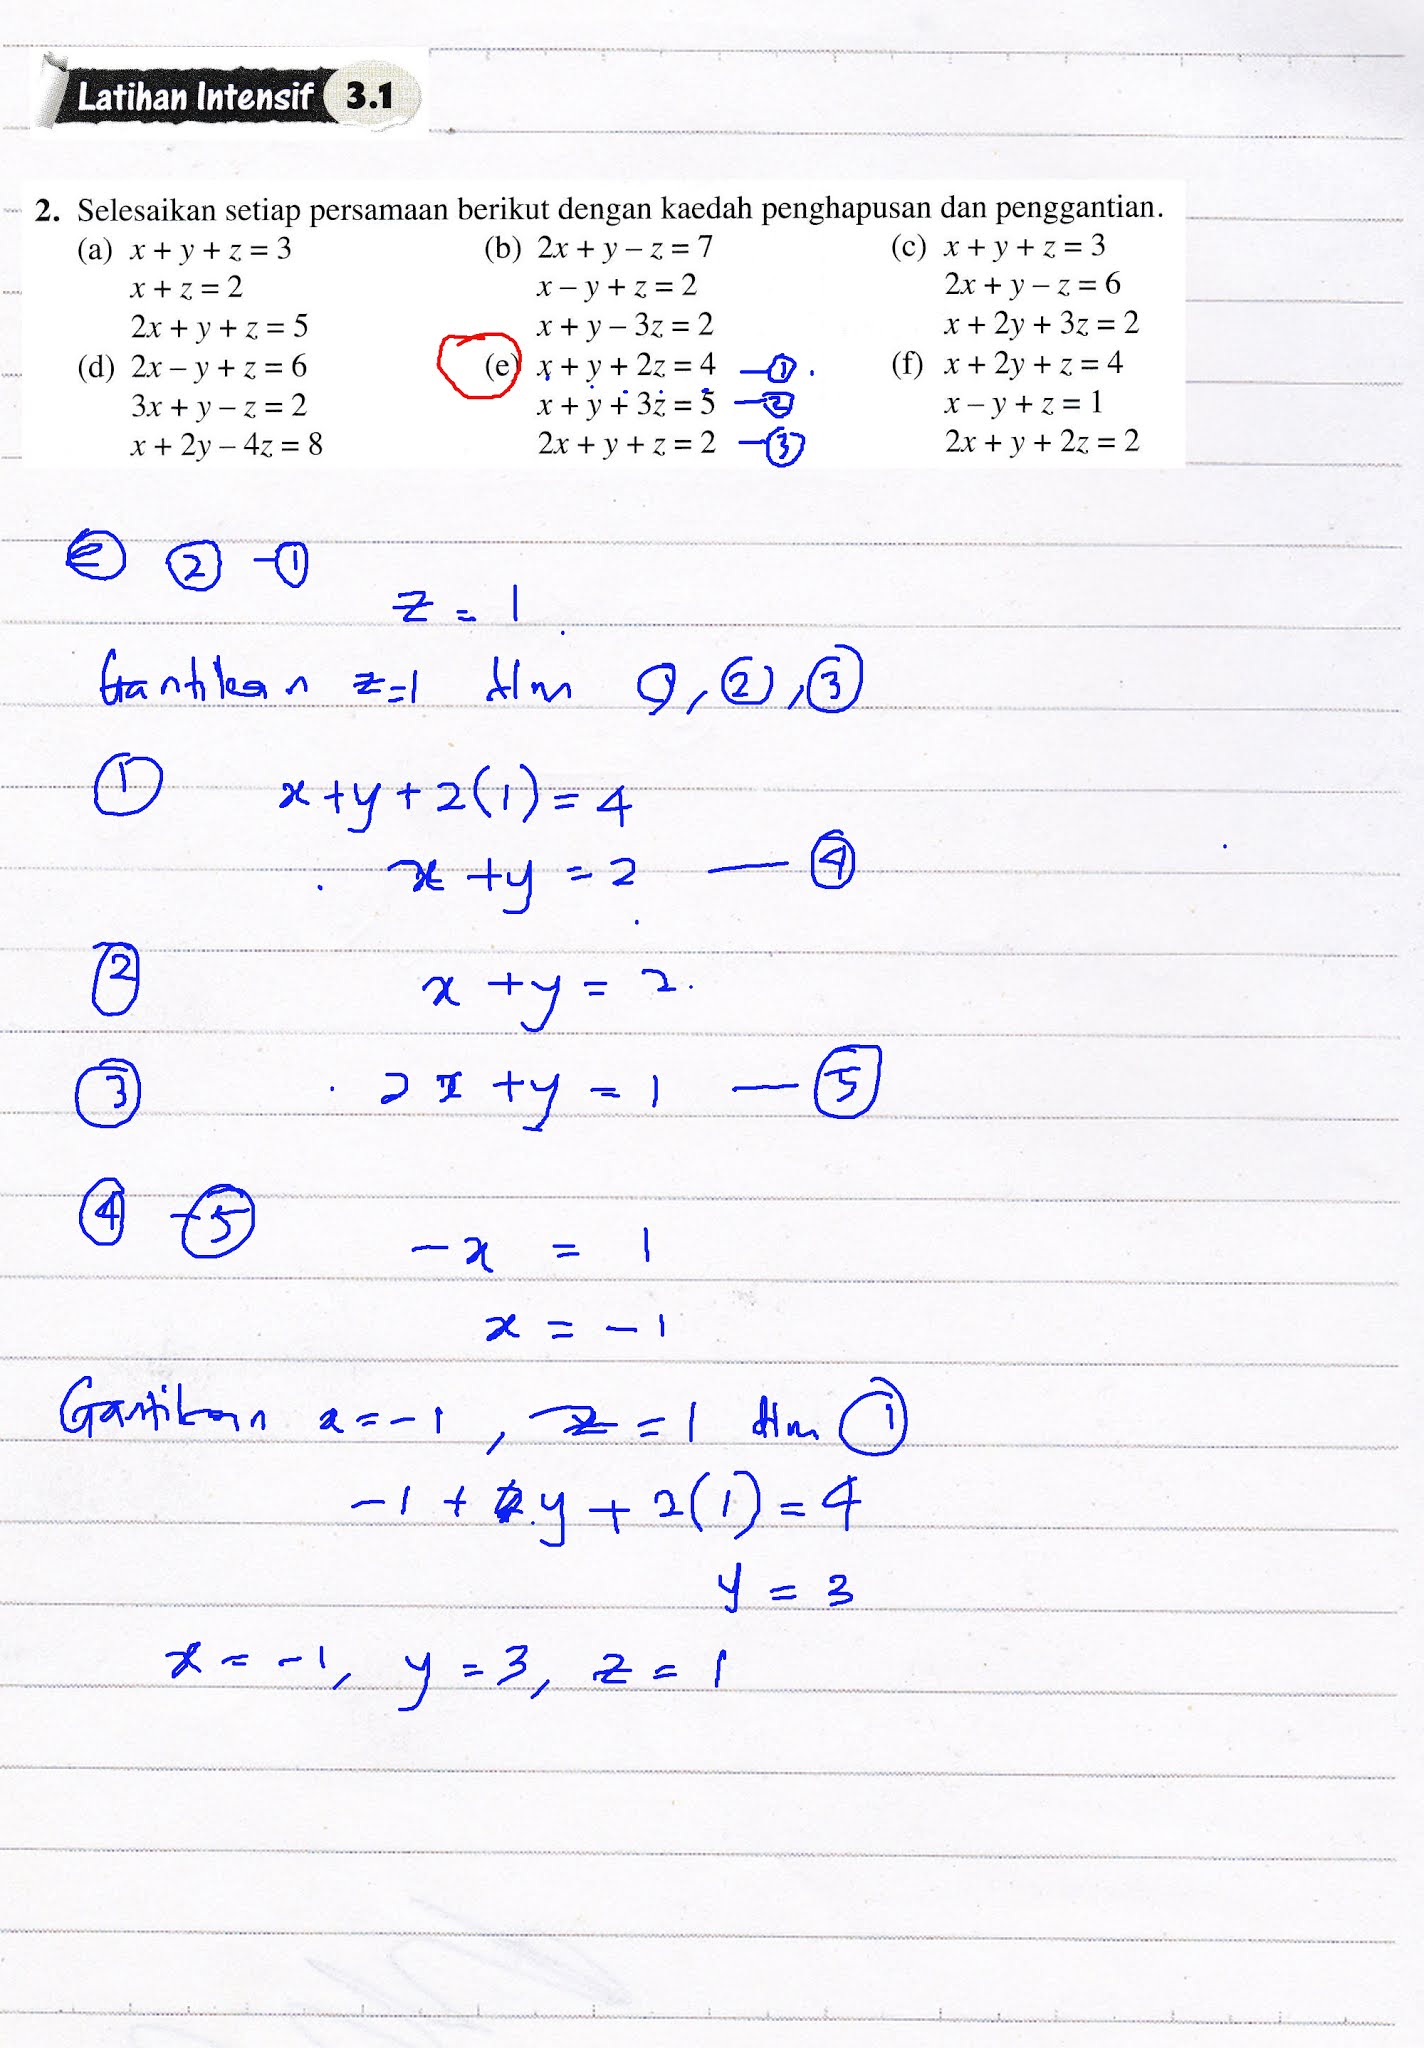 Latihan Intensif 3.1
2. Selesaikan setiap persamaan berikut dengan kaedah penghapusan dan penggantian.
(a) x + y + z = 3
x + z = 2
2x + y + z = 5
(b) 2x + y – z = 7
x – y + z = 2
x + y – 3z = 2
(c) x + y + z = 3
2x + y – z = 6
x + 2y + 3z = 2
(d) 2x – y + z = 6
3x + y – z = 2
x + 2y – 4z = 8
(e) x + y + 2z = 4 — ①
x + y + 3z = 5 — ②
2x + y + z = 2 — ③
(f) x + 2y + z = 4
x – y + z = 1
2x + y + 2z = 2
② - ①
z = 1
Gantikan z=1 dlm ①, ②, ③
① x+y+2(1)=4
x+y=2 — ④
② x+y=2
③ 2x+y=1 — ⑤
④ - ⑤
-x = 1
x = -1
Gantikan x=-1, z=1 dlm ①
-1 + y + 2(1)=4
y = 3
x = -1, y = 3, z = 1